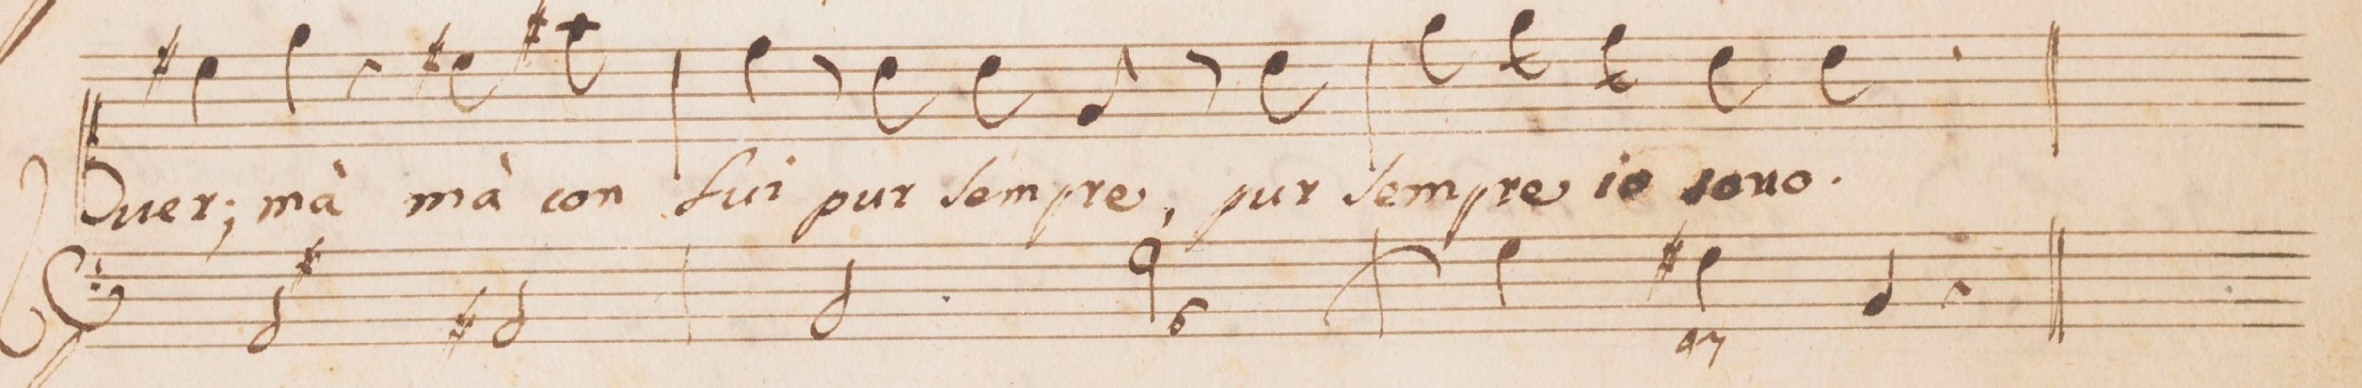 Duer; mà mà con lui pur sempre, pur sempre io sono.
6
97